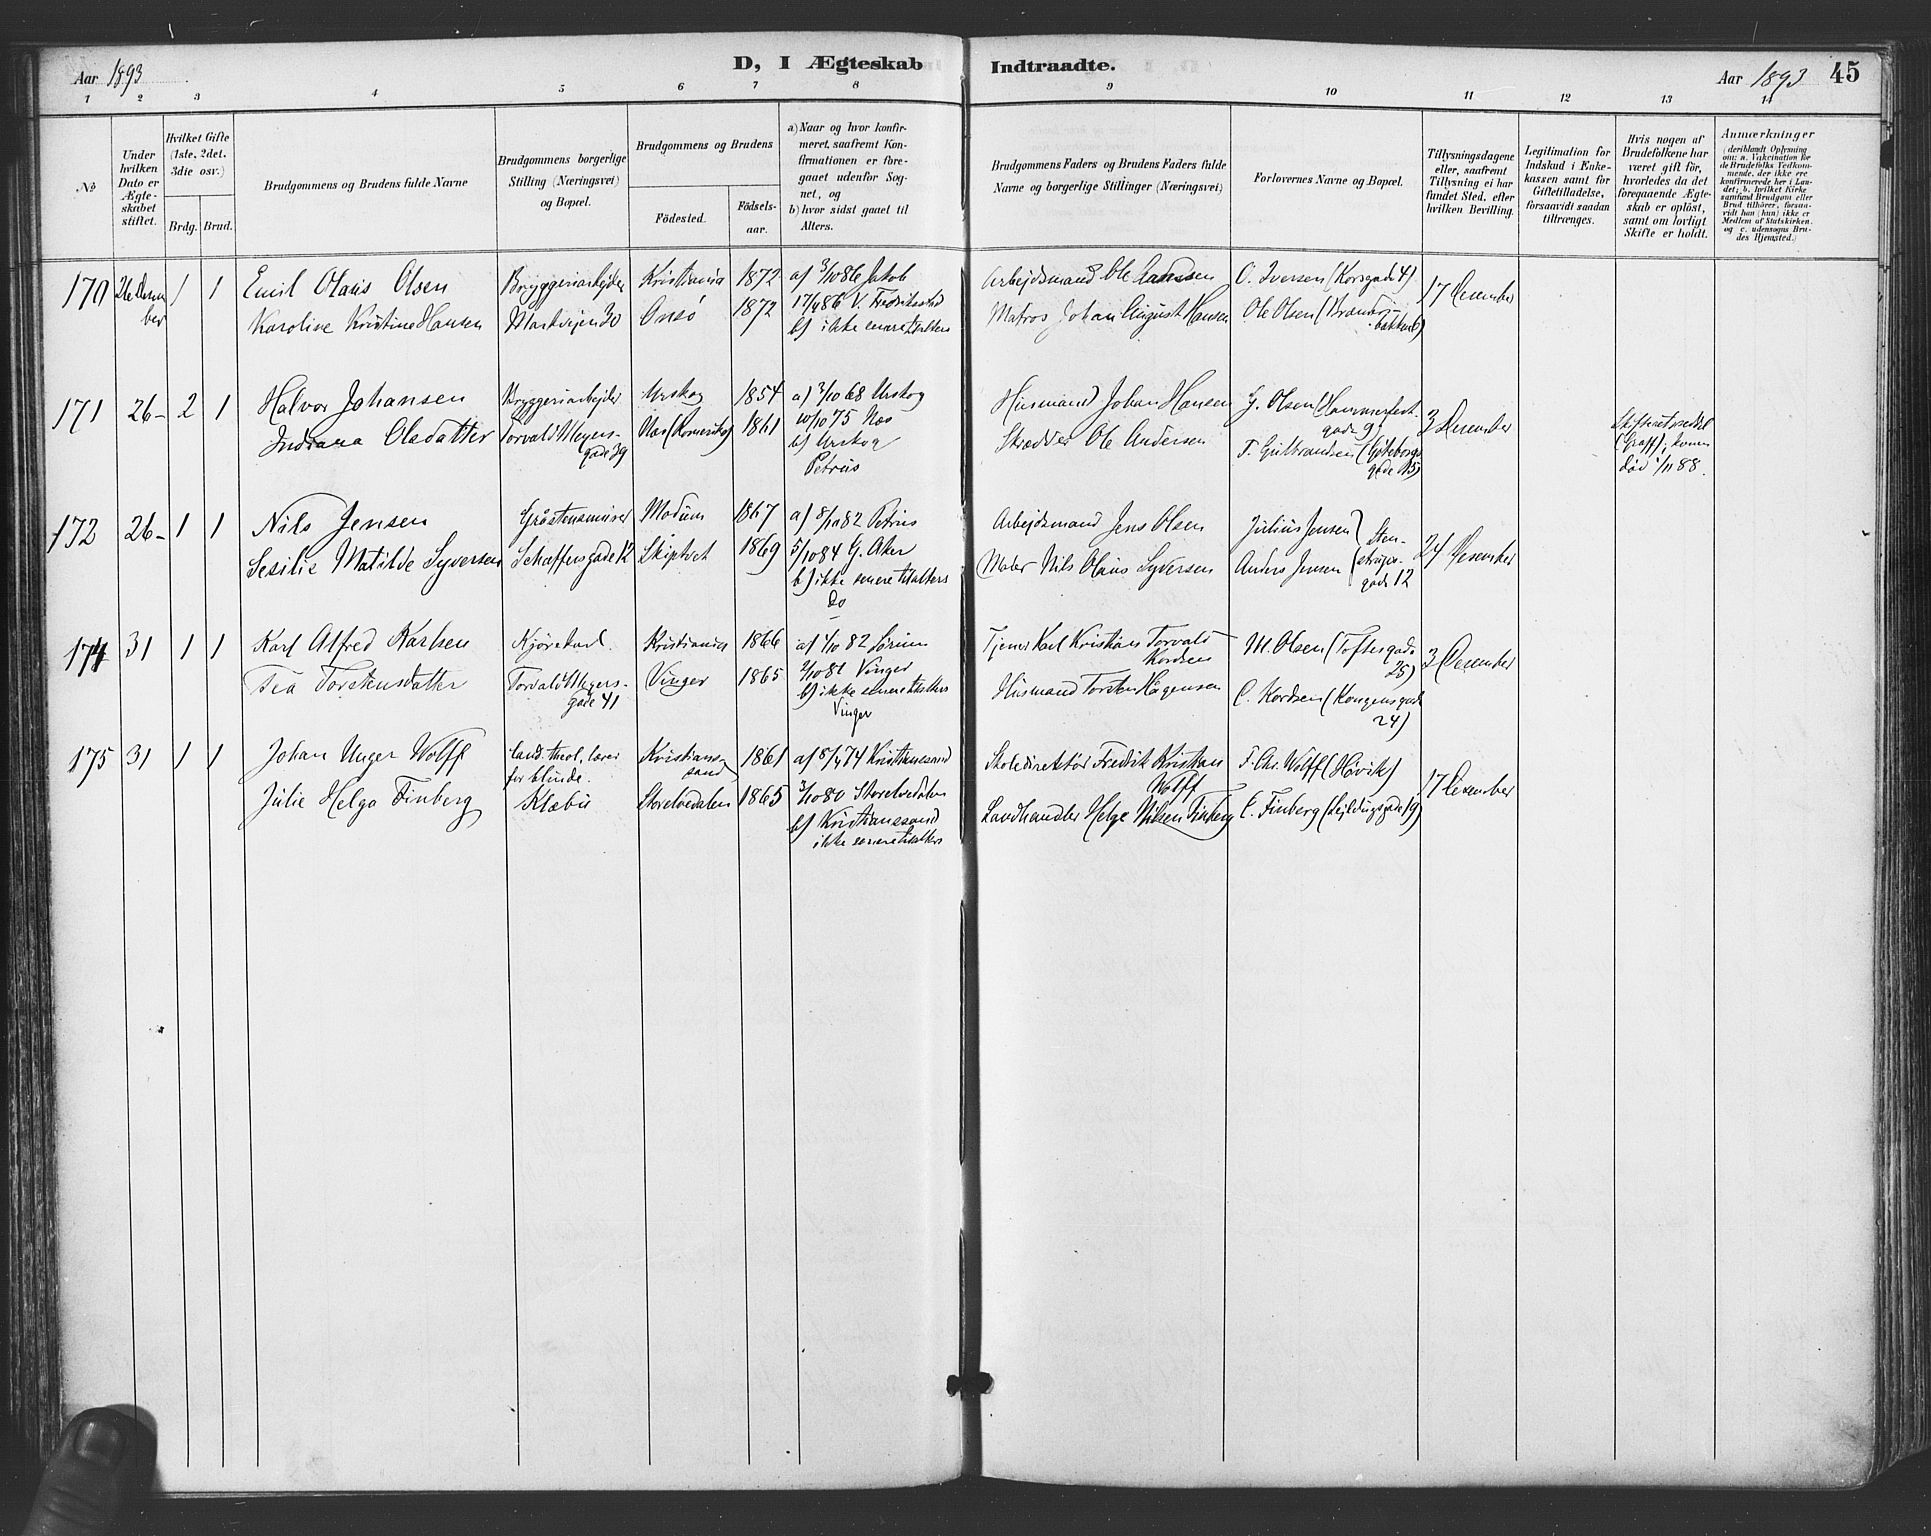 Aar 1893
D, I Ægteskab Indtraadte.
Aar 1893 45
1 2 3 4 5 6 7 8 9 10 11 12 13 14
No
Under hvilken Dato er Ægteskabet stiftet.
Hvilket Gifte (1ste, 2det, 3die osv.)
Brdg. Brud.
Brudgommens og Brudens fulde Navne
Brudgommens borgerlige Stilling (Næringsvei) og Bopæl.
Brudgommens og Brudens
Födested.
Födselsaar.
a) Naar og hvor konfirmeret, saafremt Konfirmationen er foregaaet udenfor Sognet, og
b) hvor sidst gaaet til Alters.
Brudgommens Faders og Brudens Faders fulde Navne og borgerlige Stillinger (Næringsvei)
Forlovernes Navne og Bopæl.
Tillysningsdagene eller, saafremt Tillysning ei har fundet Sted, efter hvilken Bevilling.
Legitimation for Indskud i Enkekassen samt for Giftetilladelse, forsaavidt saadan tiltrænges.
Hvis nogen af Brudefolkene har været gift för, hvorledes da det foregaaende Ægteskab er oplöst, samt om lovligt Skifte er holdt.
Anmærkninger
(deriblandt Oplysning om: a. Vakcination for de Brudefolks Vedkommende, der ikke ere konfirmerede her i Landet; b. hvilket Kirkesamfund Brudgom eller Brud tilhörer, forsaavidt han (hun) ikke er Medlem af Statskirken, og c. udensogns Brudes Hjemsted.)
170 26 Desember 1 1 Emil Olaus Olsen Bryggeriarbejder Kristiania 1872 a) 3/10 86 Jakob Arbejdsmand Ole O. Iversen (Korsgade 4) 17 Desember
Karoline Kristine Hansen Markvejen 30 Onsö 1872 V. Fredrikstad Matros Johan August Hansen Ole Olsen
b) ikke senere tilalters
171 26– 2 1 Halvor Johansen Bryggeriarbejder Urskog 1854 a) 3/10 68 Urskog Husmand Johan Hansen G. Olsen (Hammerfestgade 9) 3 Desember
Indiana Olsdatter Torvald Meyersgade 39 1861 10/10 75 Næs Skrædder Ole Andersen F. Gulbrandsen (Göteborggade 15)
b) Urskog
Petrus
død 1/11 88.
172 26– 1 1 Nils Jensen Modum 1867 a) 8/10 82 Petrus Arbejdsmand Jens Olsen Julius Jensen 24 Desember
Sesilie Matilde Syversen Schæffersgade 12 Skiptvet 1869 5/10 84 G. Aker Maler Nils Olaus Syversen Anders Jensen gade 12
b) ikke senere tilalters
Do
174 31 1 1 Karl Alfred Karlsen Kristiania 1866 a) 1/10 82 Sørum Tjener Karl Kristian Torvald M. Olsen (Toftesgade 25) 3 Desember
Tea Torstensdatter Torvald Meyersgade 41 Vinger 1865 2/10 81 Vinger Husmand Torsten Hagensen C. Kordsen (Kongensgade 24)
b) ikke senere tilalters
Vinger
175 31 1 1 Johan Unger Wolff Cand. theol, lærer for blinde. Kristianssand 1861 a) 8/4 74 Kristianssand Skoledirektör Fredrik Kristian Wolff F. Chr. Wolff (Høvik) 17 Desember
Julie Helga Finberg Klæbu Storelvedalen 1865 2/10 80 Storelvedalen Landhandler Helge Nilsen Finberg C. Finberg
b) Kristianssand
ikke senere tilalters